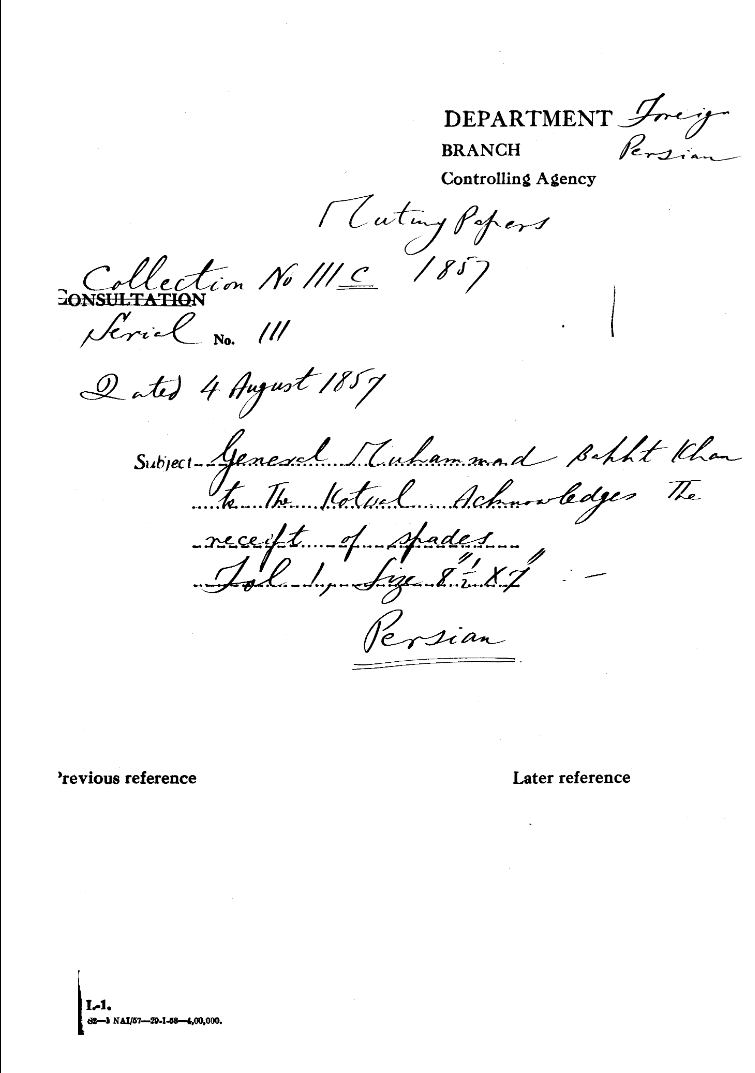 DEPARTMENT Foreign
BRANCH Persian
Controlling Agency
Mutiny Papers
Collection No III C 1857
CONSULTATION
Serial No. 111
Dated 4 August 1857
Subject General Muhammad Bakht Khan
to The Kotwal Acknowledges The
receipt of spades
Fol 1, Size 8 1/2" X 7" : —
Persian
Previous reference
Later reference
L-1.
NAI/57—29-1-58—4,00,000.